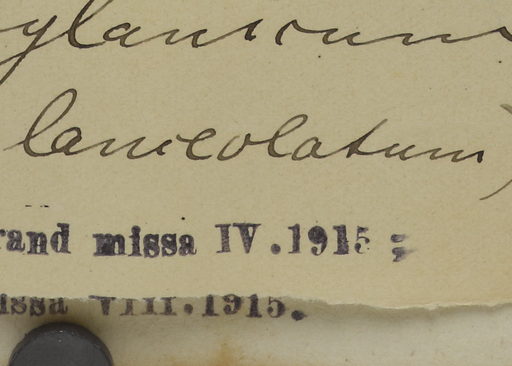 lanceolatum)
rand missa IV.1915;
issa VIII.1915.